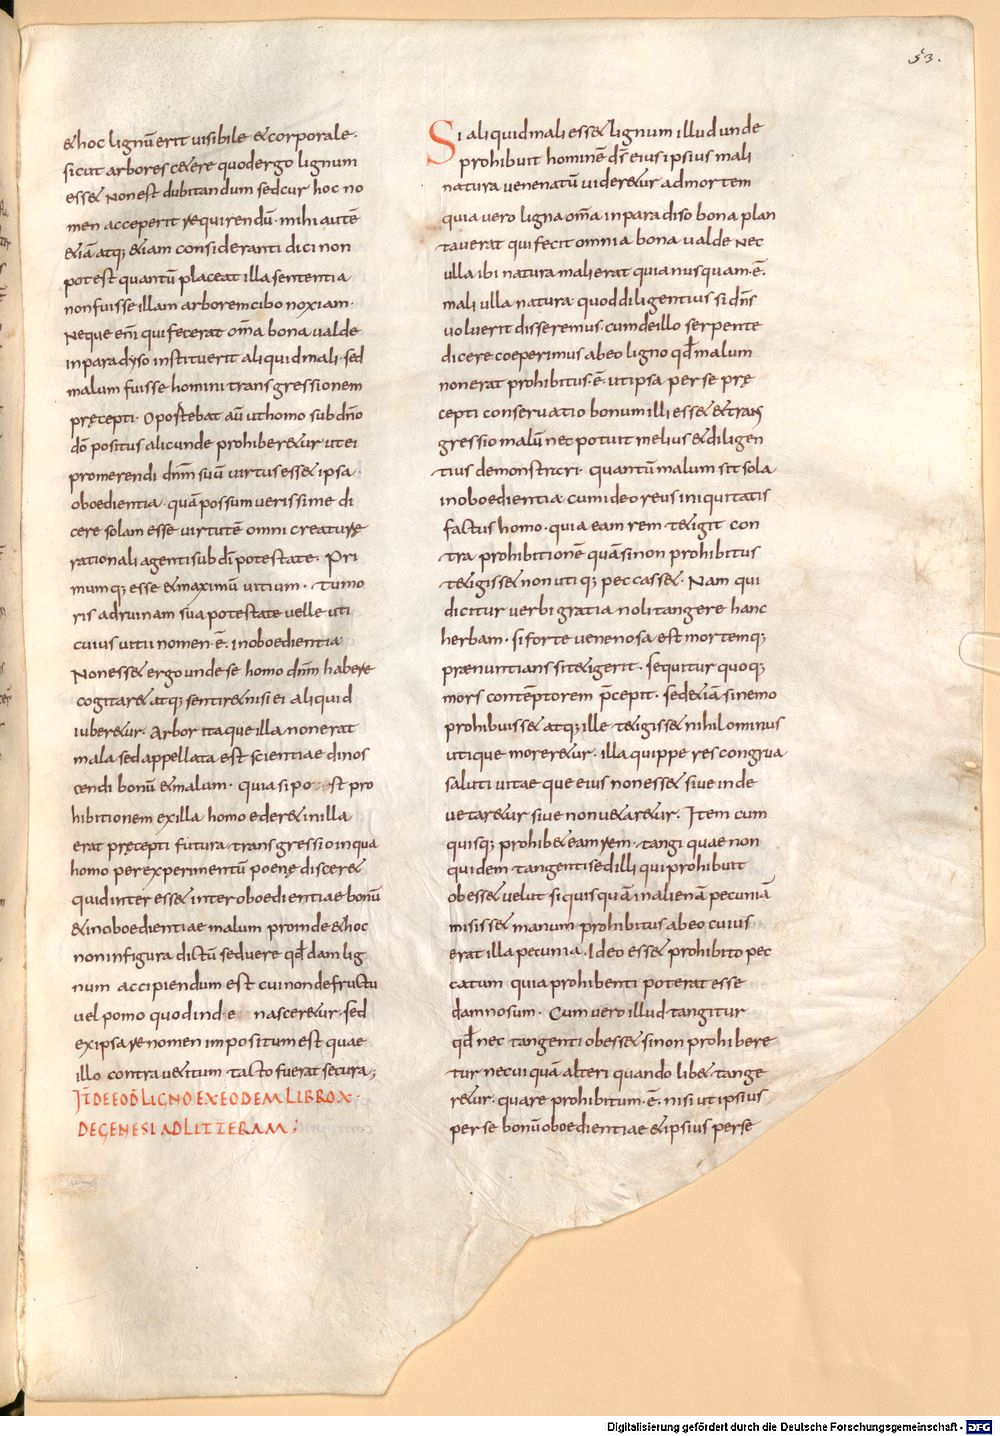 53.
& hoc lignū erit visibile & corporale.
sicut arbores c&ere quod ergo lignum
ess& Non est dubitandum sed cur hoc no
men acceperit requirendū. mihi autē
&iā atq; &iam consideranti dici non
potest quantū placeat illa sententia
non fuisse illam arborem cibo noxiam.
Neque eni qui fecerat om̄a bona valde
in paradyso instituerit aliquid mali. sed
malum fuisse homini transgressionem
pręcepti. Oportebat aū ut homo sub dn̄o
dō positus alicunde prohiber&ur ut ei
promerendi dnm̄ suū virtus ess& ipsa
oboedientia. quā possum verissime di
cere solam esse virtutē omni creaturę
rationali agenti sub dī potestate. Pri
mumq; esse & maximū vitium. tumo
ris ad ruinam sua potestate velle uti
cuius vitii nomen .ē. inoboedientia
Non ess& ergo unde se homo dnm̄ habere
cogitar& atq; sentir& nisi ei aliquid
iuber&ur. Arbor itaque illa non erat
mala sed appellata est scientiae dinos
cendi bonū & malum. quia si po est pro
hibitionem ex illa homo eder& in illa
erat pręcepti futura transgressio in qua
homo per experimentū poenę discer&
quid inter ess& inter oboedientiae bonū
& inoboedientiae malum proinde & hoc
non in figura dictū sed vere qd̄dam lig
num accipiendum est cui non de fructu
vel pomo quod ind e nascer&ur. sed
ex ipsa re nomen impositum est quae
illo contra v&itum tacto fuerat secura;
IT̄ DE EOD̄ LIGNO EX EODEM LIBRO X.
DE GENESI AD LITTERAM;
Si aliquid mali ess& lignum illud unde
prohibuit hominē ds̄ eius ipsius mali
natura venenatū vider&ur ad mortem
quia vero ligna om̄a in paradiso bona plan
taverat qui fecit omnia bona valde Nec
ulla ibi natura mali erat quia nusquam .ē.
mali ulla natura quod diligentius si dn̄s
voluerit disseremus cum de illo serpente
dicere coeperimus ab eo ligno qd̄ malum
non erat prohibitus .ē. ut ipsa per se prę
cepti conservatio bonum illi ess& & trans
gressio malū nec potuit melius & diligen
tius demonstrari. quantū malum sit sola
inoboedientia. cum ideo reus iniquitatis
factus homo. quia eam rem t&igit con
tra prohibitionē quā si non prohibitus
t&igiss& non utiq; peccass&. Nam qui
dicitur verbi gratia noli tangere hanc
herbam. si forte venenosa est mortemq;
prænuntians si t&igerit. sequitur quoq;
mors contēptorem p̄cepti. sed &iā si nemo
prohibuiss& atq; ille t&igiss& nihilominus
utique morer&ur. illa quippe res congrua
saluti vitaeque eius non ess& sive inde
v&ar&ur sive non v&ar&ur. Item cum
quisq; prohib& eam rem tangi quae non
quidem tangenti sed illi qui prohibuit
obess& velut si quisquā in alienā pecuniā
misiss& manum prohibitus ab eo cuius
erat illa pecunia. Ideo ess& prohibito pec
catum quia prohibenti poterat esse
damnosum. Cum vero illud tangitur
qd̄ nec tangenti obess& si non prohibere
tur nec cuiquā alteri quando lib& tange
r&ur. quare prohibitum .ē. nisi ut ipsius
per se bonū oboedientiae & ipsius per se
Digitalisierung gefördert durch die Deutsche Forschungsgemeinschaft - DFG